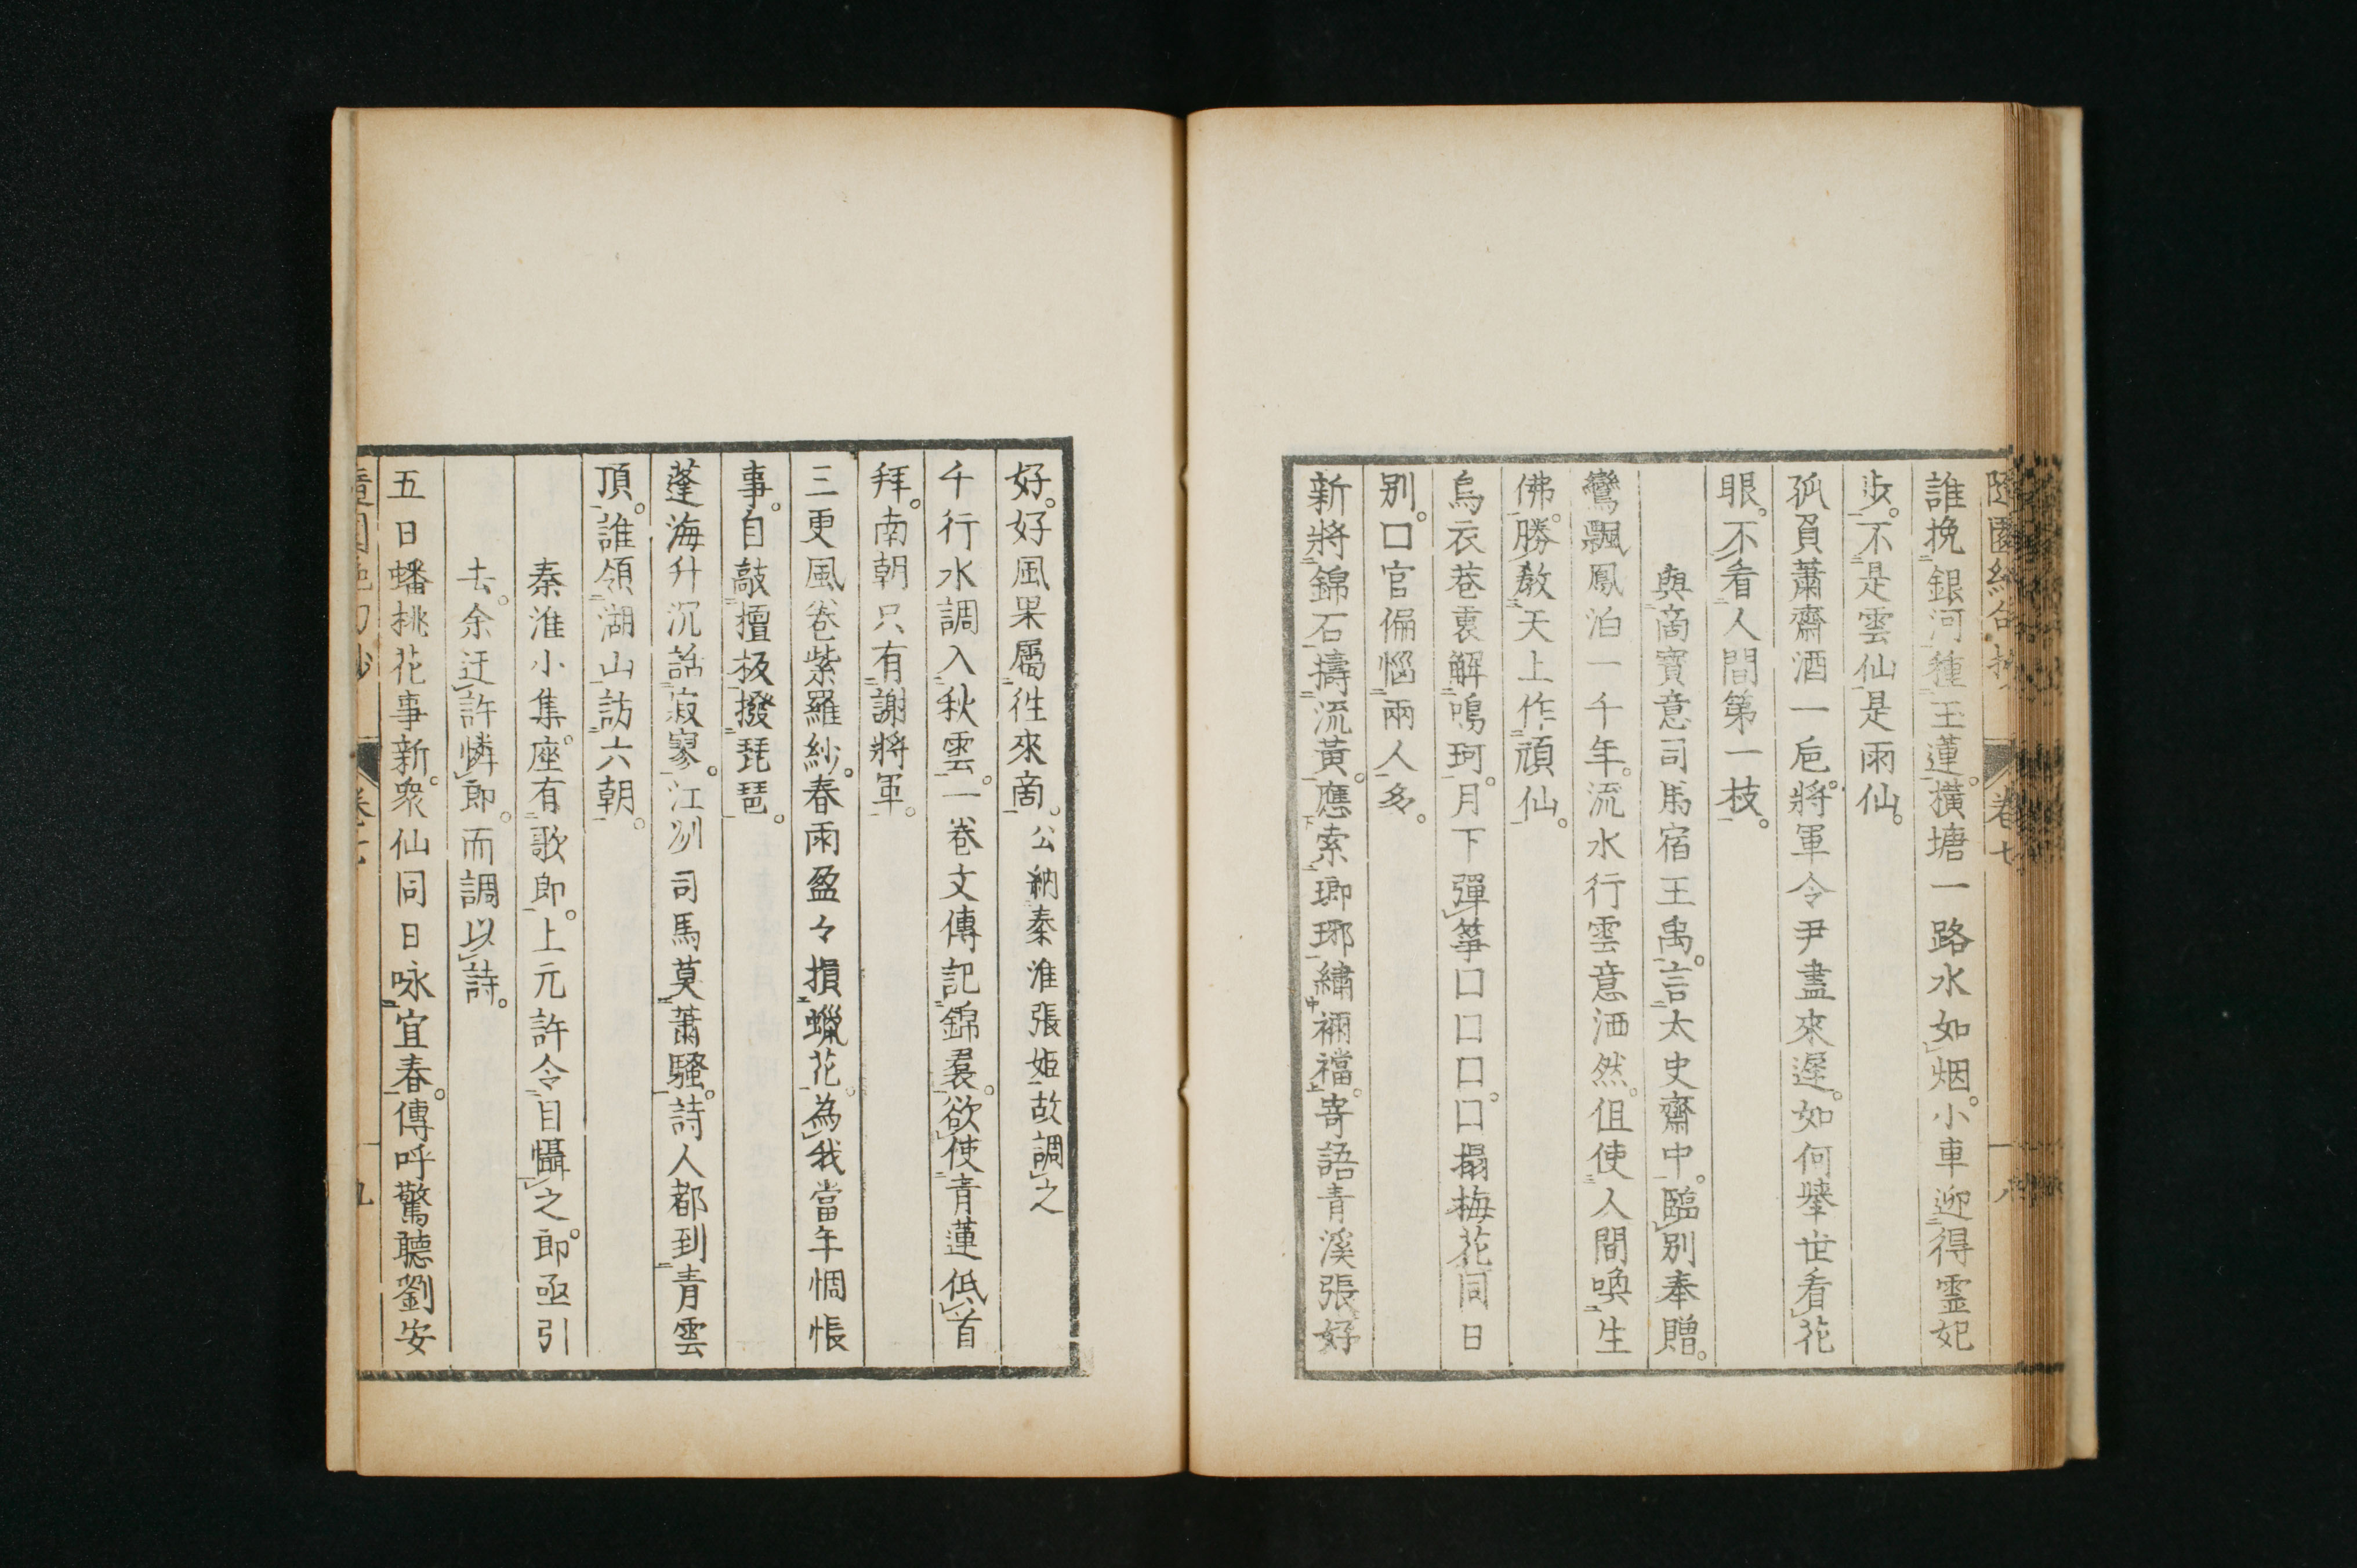 隨園絶句抄 卷七 八
誰挽銀河種玉蓮。橫塘一路水如烟。小車迎得靈妃
步。不是雲仙是雨仙。
孤負蕭齋酒一巵。將軍令尹盡來遲。如何擧世看花
眼。不看人間第一枝。
與商寶意司馬宿王禹言太史齋中。臨別奉贈。
鸞飄鳳泊一千年。流水行雲意洒然。但使人間喚生
佛。勝敎天上作頑仙。
烏衣巷裏解鳴珂。月下彈箏口口口。口搨梅花同日
別。口官偏惱兩人多。
新將錦石擣流黃。應索瑯琊繡裲襠。寄語青溪張好
好。好風果屬往來商。公納秦淮張姬故調之
千行水調入秋雲。一卷文傳記錦裠。欲使青蓮低首
拜。南朝只有謝將軍。
三更風卷紫羅紗。春雨盈々損蠟花。為我當年惆悵
事。自敲檀板撥琵琶。
蓬海升沉話寂寥。江州司馬莫蕭騷。詩人都到青雲
頂。誰領湖山訪六朝。
秦淮小集。座有歌郎。上元許令目懾之。郎亟引
去。余迂許憐郎。而調以詩。
五日蟠桃花事新。衆仙同日咏宜春。傳呼驚聽劉安